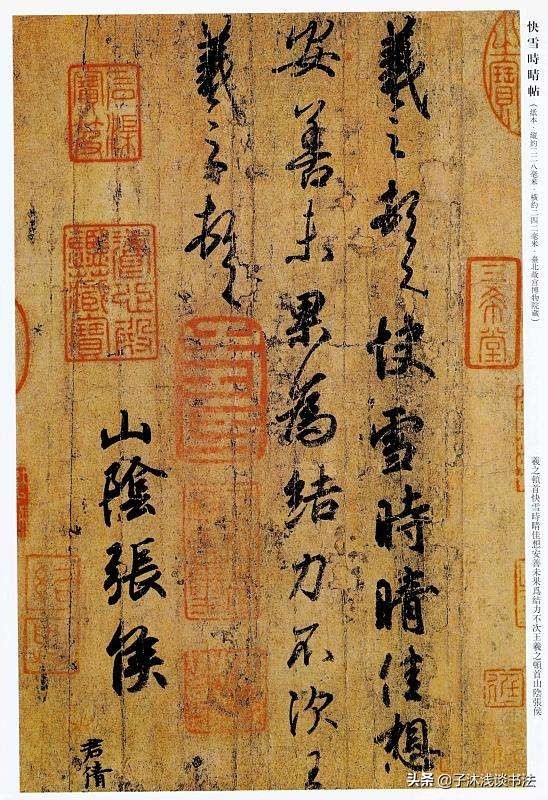 快雪時晴帖
(紙本·縱約毫米·橫約毫米·臺北故宮博物院藏)
羲之頓首快雪時晴佳想安善未果爲結力不次王羲之頓首山陰張侯
三希堂
羲之頓首快雪時晴佳想
安善未果為結力不次王
羲之頓首
山陰張侯
君倩
头条 @子沐浅谈书法